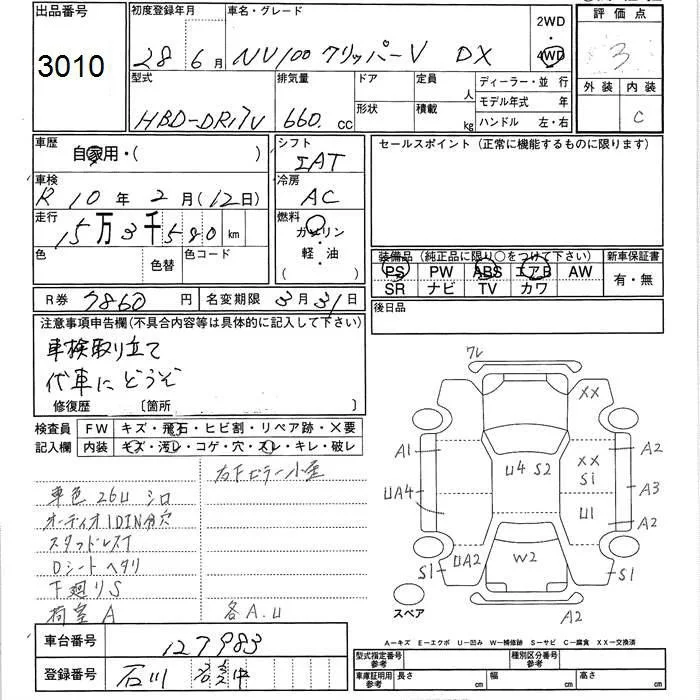 出品番号
3010
初度登録年月
28 6月
車名・グレード
NV100 クリッパーV DX
2WD
4WD
評価点
3
外装 内装
C
型式
HBD-DR17V
排気量
660. cc
ドア
形状
定員
人
積載
kg
ディーラー・並行
モデル年式 年
ハンドル 左・右
車歴
自家用・( )
シフト
IAT
セールスポイント (正常に機能するものに限ります)
車検
R 10年 2月(12日)
冷房
AC
走行
15万3千590km
燃料
ガソリン
軽・油
( )
色
色替
色コード
装備品 (純正品に限り○をつけて下さい)
新車保証書
PS PW ABS エアB AW
SR ナビ TV カワ
有・無
R券 7860円
名変期限 3月31日
後日品
注意事項申告欄(不具合内容等は具体的に記入して下さい)
車検取り立て
代車にどうぞ
修復歴 〔箇所 〕
検査員
記入欄
FW キズ・飛石・ヒビ割・リペア跡・×要
内装 キズ・汚レ・コゲ・穴・スレ・キレ・破レ
車色 26U シロ
オーディオ1DIN分穴
Dシートヘタリ
下廻りS
荷室 A 各A.U
ワレ
XX
A1
A2
U4 S2
XX
S1
A3
UA4
U1
A2
S1
UA2
W2
S1
スペア
A2
A-キズ E-エクボ U-凹み W-補修跡 S-サビ C-腐食 XX-交換済
車台番号
127983
登録番号
石川
型式指定番号
参考
種別区分番号
参考
車庫証明用
参考
長さ cm
幅 cm
高さ cm